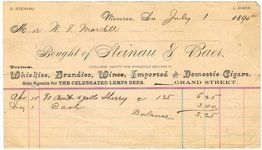 D. STEINAU
L. BAER.
Monroe, La July 1 1895
M r W. P. Mardell
Bought of Steinau & Baer,
DISTILLERS' AGENTS AND WHOLESALE DEALERS IN
Whiskies, Brandies, Wines, Imported and Domestic Cigars.
Sole Agents for THE CELEBRATED LEMPS BEER.
GRAND STREET.
Terms:
Apr 15 galls Sherry 125 6 25
Cash 3 00
Balance 3.25